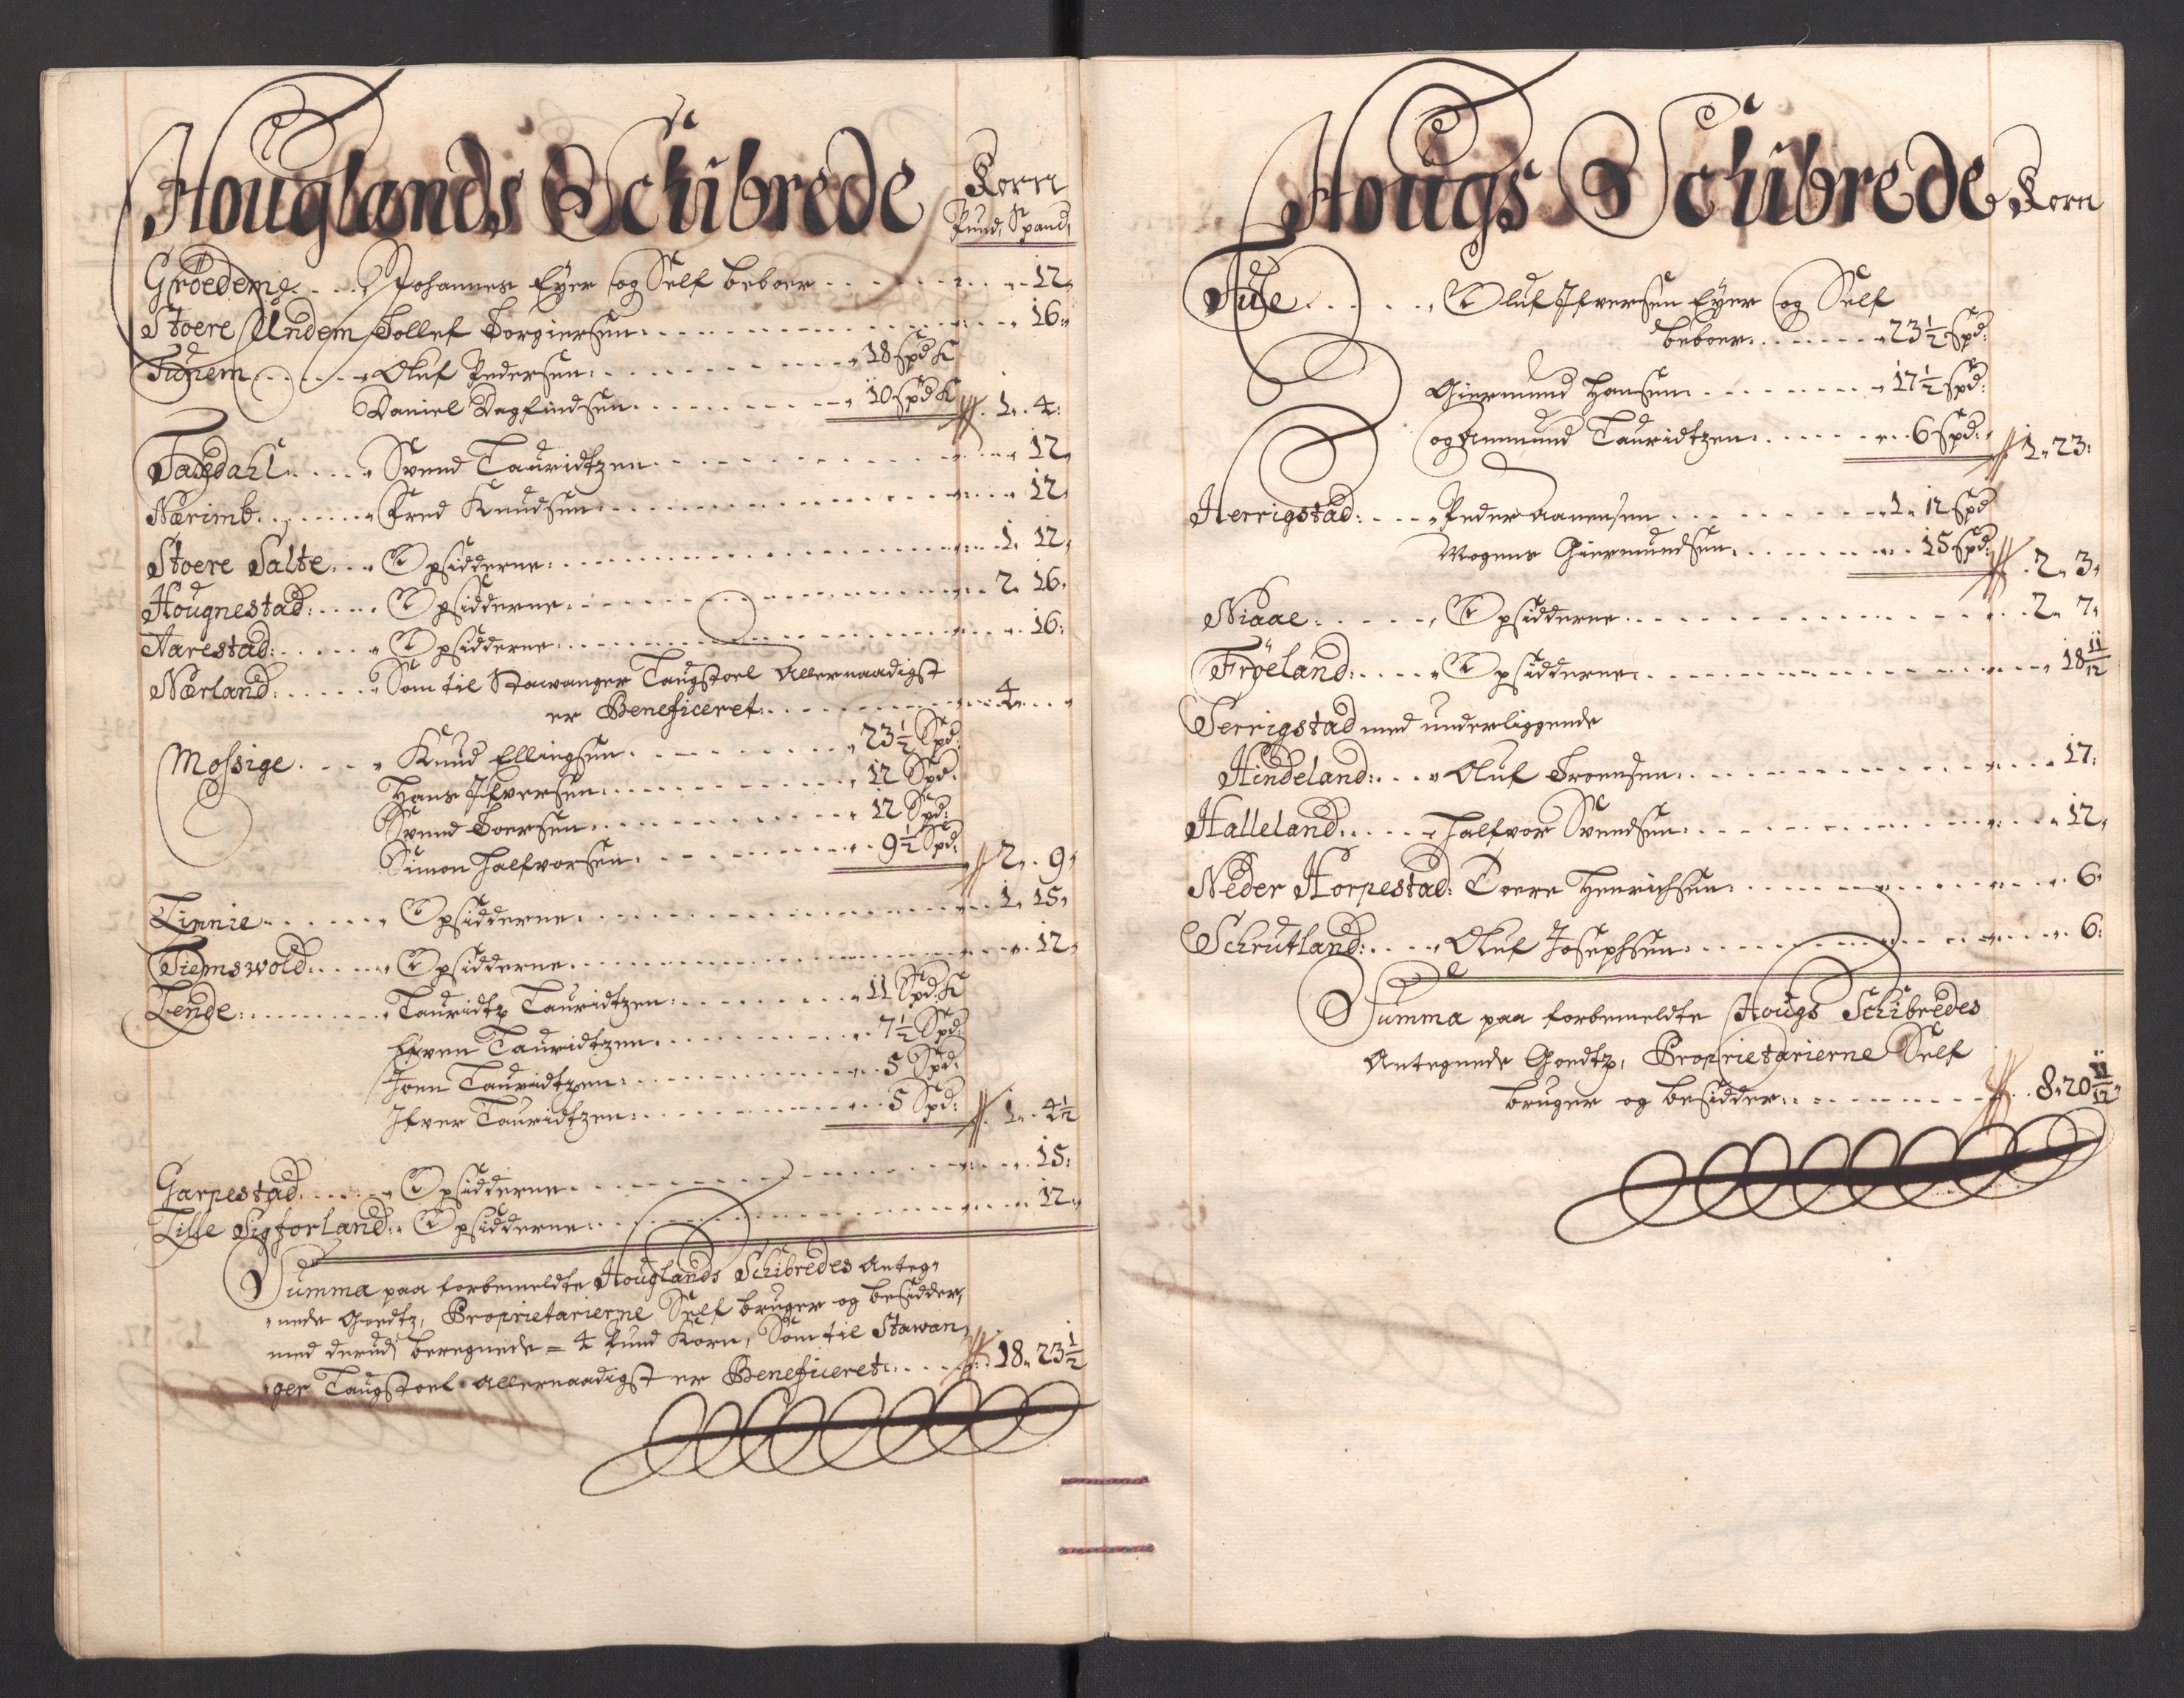 Houglands Schibrede Korn
Pund, Spand,
Gröedem Johannes Eyer og Self beboer 12,
Stoere Undem Tollef Torgiersen: 16:
Tunem Oluf Pedersen: 18 Spd K
Daniel Dagfindsen 10 Spd K 1. 4:
Taxedahl Svend Lauridtzen 12,
Nærimb Fred Knudsen 12,
Stoere Salte Opsidderne: 1. 12,
Hougnestad: Opsidderne: 2. 16.
Aarestad: Opsidderne: 16:
Nærland: Som til Stawanger Laugstoel Allernaadigst
er Beneficeret: 4
Mossige Knud Ellingsen 23½ Spd:
Hans Ifversen: 12 Spd:
Svend Toersen: 12 Spd:
Simon Halfvorsen 9½ Spd: 2. 9,
Linnie Opsidderne 1. 15,
Tiemswold Opsidderne 12,
Lende: Lauridtz Lauridtzen: 11 Spd: K
Efven Lauridtzen 7½ Spd:
Joen Lauridtzen: 5 Spd:
Ifver Lauridtzen: 5 Spd: 1. 4½
Garpestad Opsidderne 15:
Lille Sigforland: Opsidderne: 12,
Summa paa forbemeldte Houglands Schibredes Anteg-
nede Goedtz, Proprietarierne Self bruger og besidder,
med derudj beregnede = 4 Pund Korn, Som til Stawan-
ger Laugstoel Allernaadigst er Beneficeret: 18. 23½
Hougs Schibrede Korn
Aule Oluf Ifversen Eyer og Self
beboer 23½ Spd:
Giermund Hansen 17½ Spd:
og Ammund Lauridtzen 6 Spd: 1. 23:
Herrigstad: Peder Aanensen 1. 12 Spd
Mogens Giermundsen 15 Spd: 2. 3,
Niaae Opsidderne 2. 7,
Fröeland: Opsidderne 18 11/12
Serrigstad med underliggende
Hindeland: Oluf Troendsen 17:
Halleland Halfvor Svendsen: 12,
Neder Horpestad: Toere Henrichsen: 6:
Schrutland: Oluf Josephsen: 6:
Summa paa forbemeldte Hougs Schibredes
Antegnede Goedtz, Proprietarierne Self
bruger og besidder: 8. 20 11/12